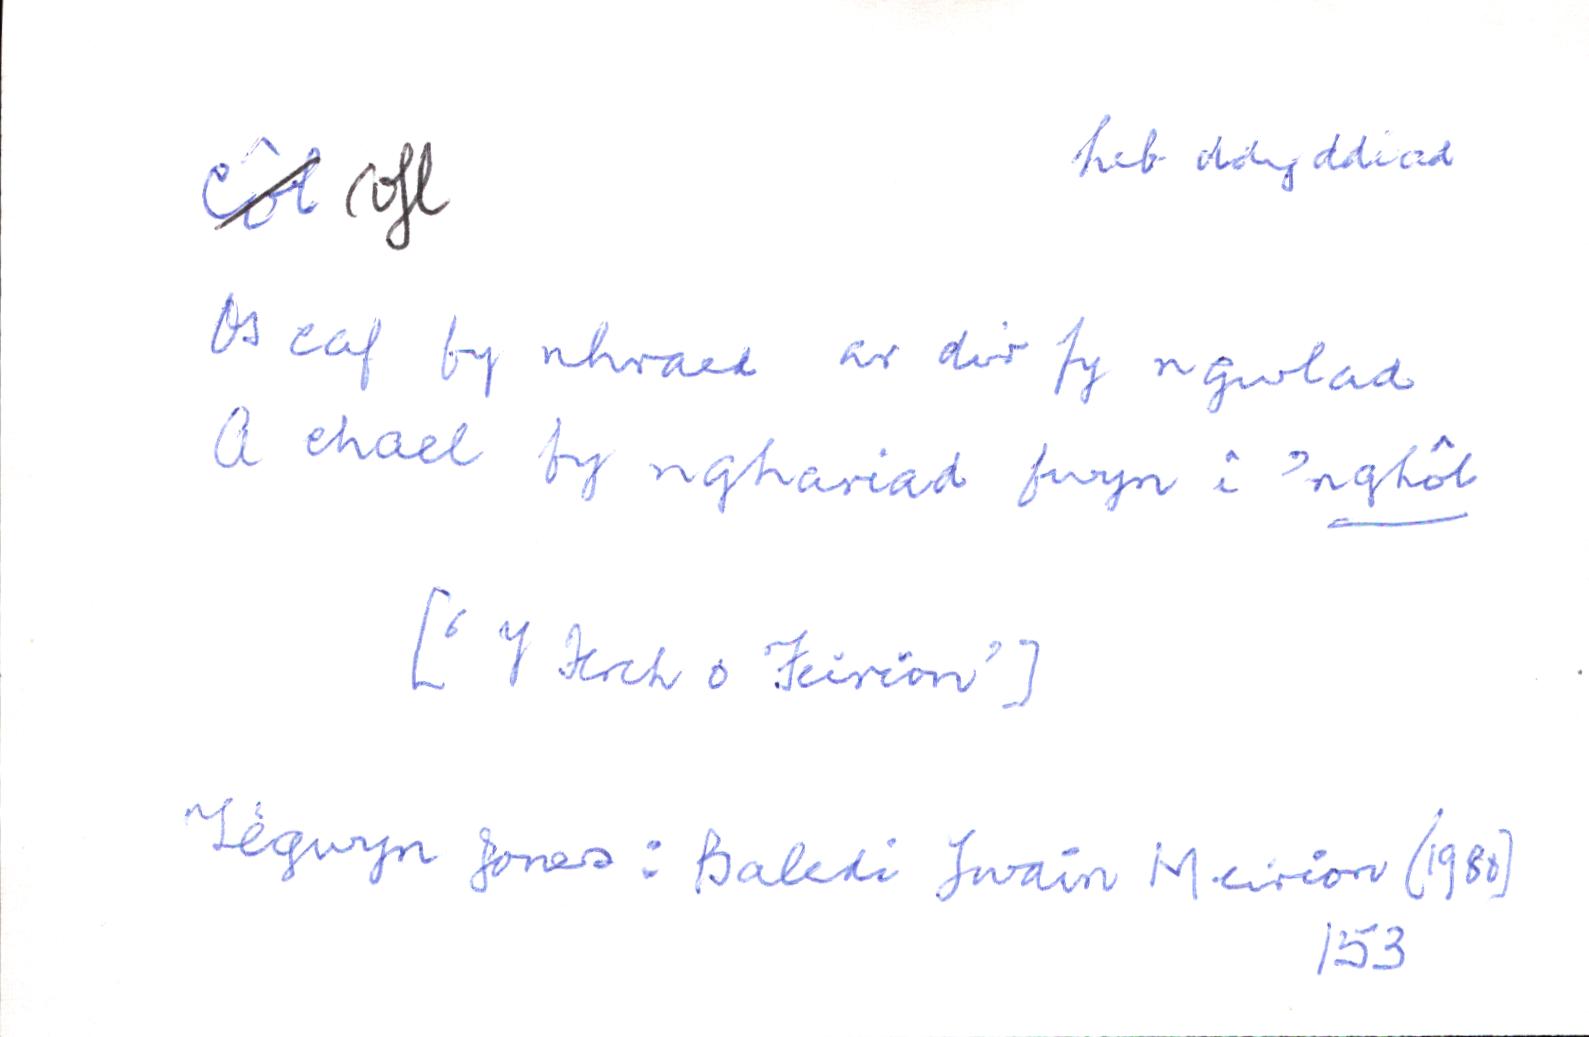 côl cofl
heb ddyddiad
Os caf fy nhraed ar dir fy ngwlad
A chael fy nghariad fwyn i 'nghôl
['Y Ferch o Feirion']
Tegwyn Jones: Baledi Ywain Meirion (1980)
153